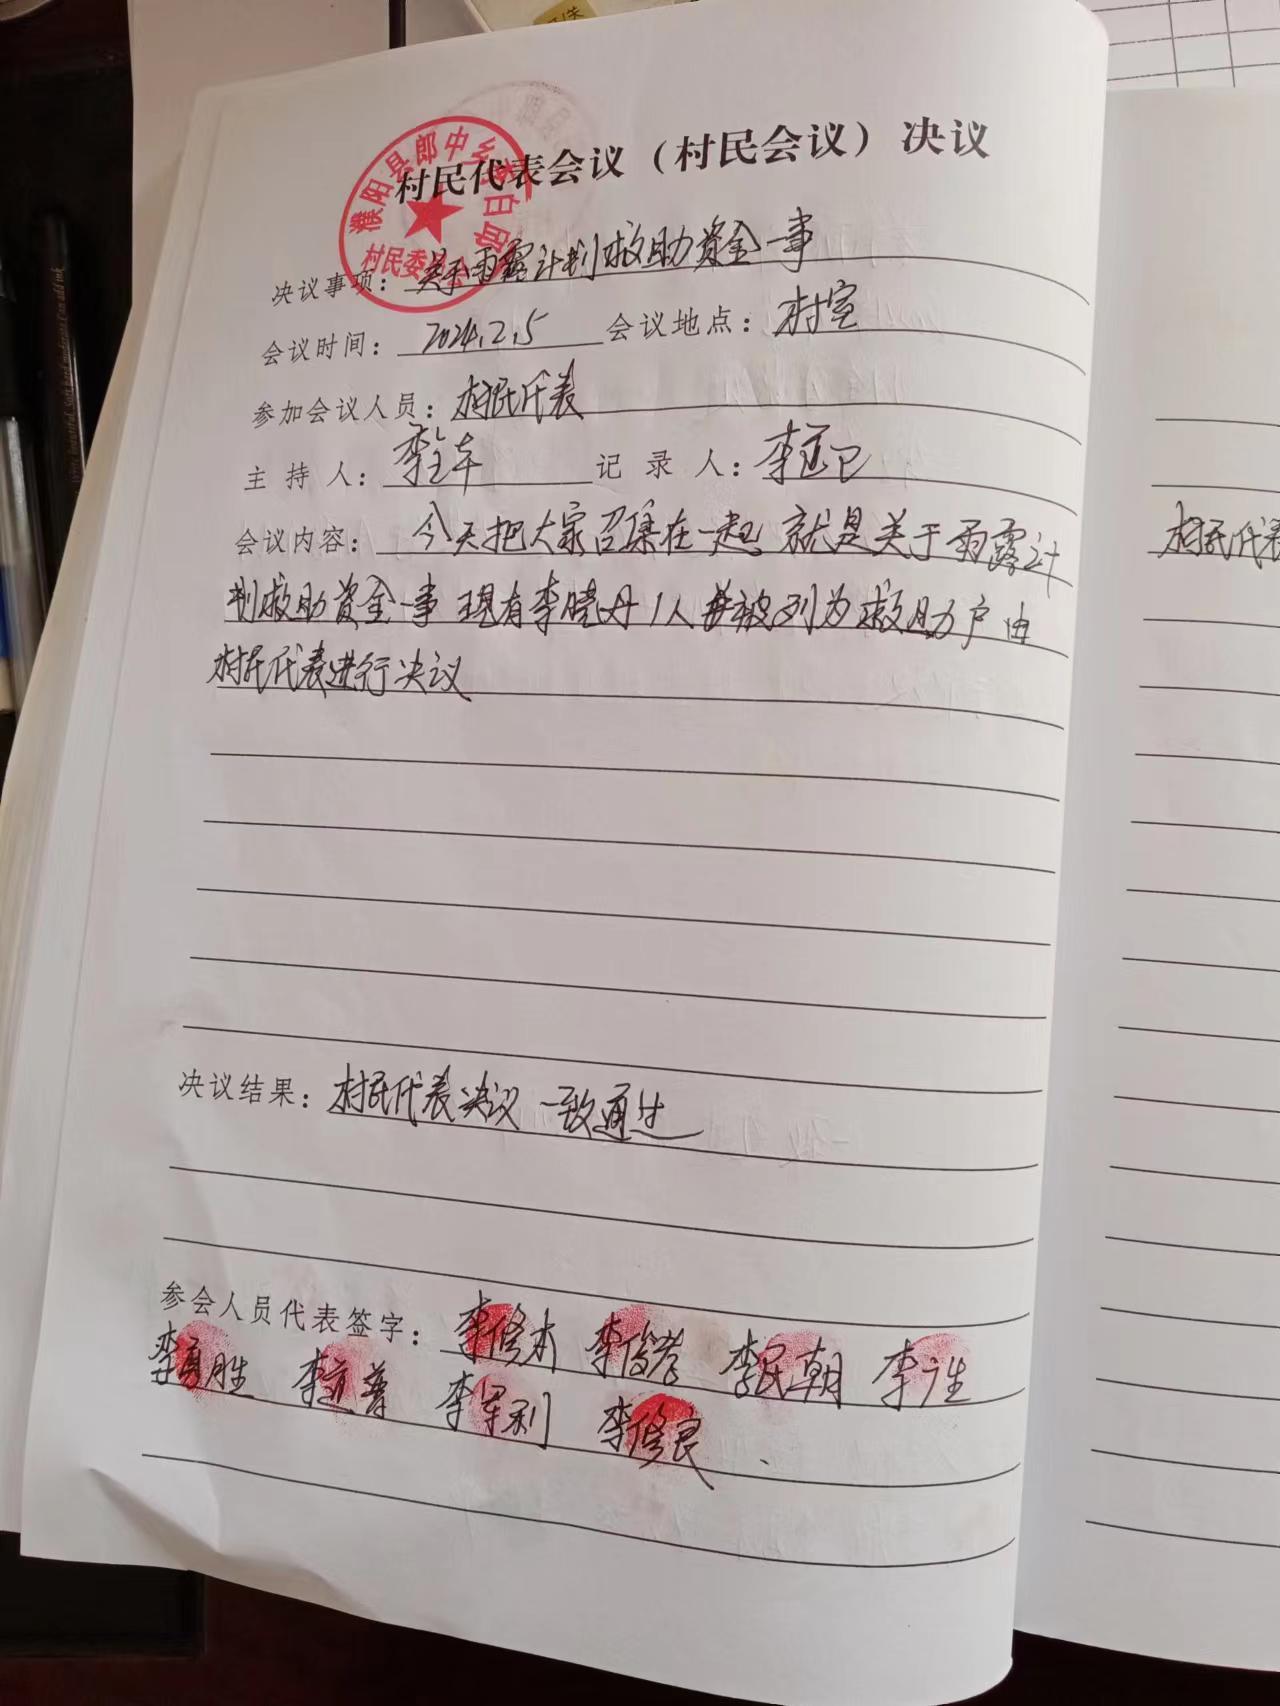 村民代表会议（村民会议）决议
濮阳县郎中乡
白邱
村民委员会
决议事项：关于雨露计划救助资金一事
会议时间：2024.2.5 会议地点：村室
参加会议人员：村民代表
主持人：李 记录人：李
会议内容：今天把大家召集在一起 就是关于雨露计
划救助资金一事 现有李晓丹1人 被列为救助户 由
村民代表进行决议
决议结果：村民代表决议 一致通过
参会人员代表签字：李修本 李俊孝 李民朝 李
李勇胜 李道普 李军利 李修良
村民代表